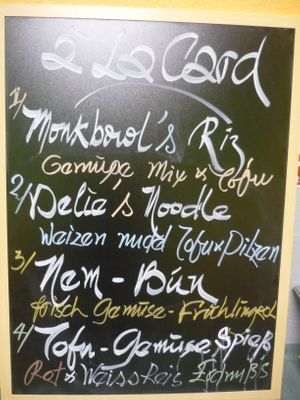 à La Card
1/ Monkbowl's Riz
Gemüse Mix & Tofu
2/ Delie's Noodle
Weizen nudel Tofu & Pilzen
3/ Nem - Bún
frisch Gemüse - Frühlings
4/ Tofu - Gemüse Spieß
Rot & Weiss Reis Erdnuß S